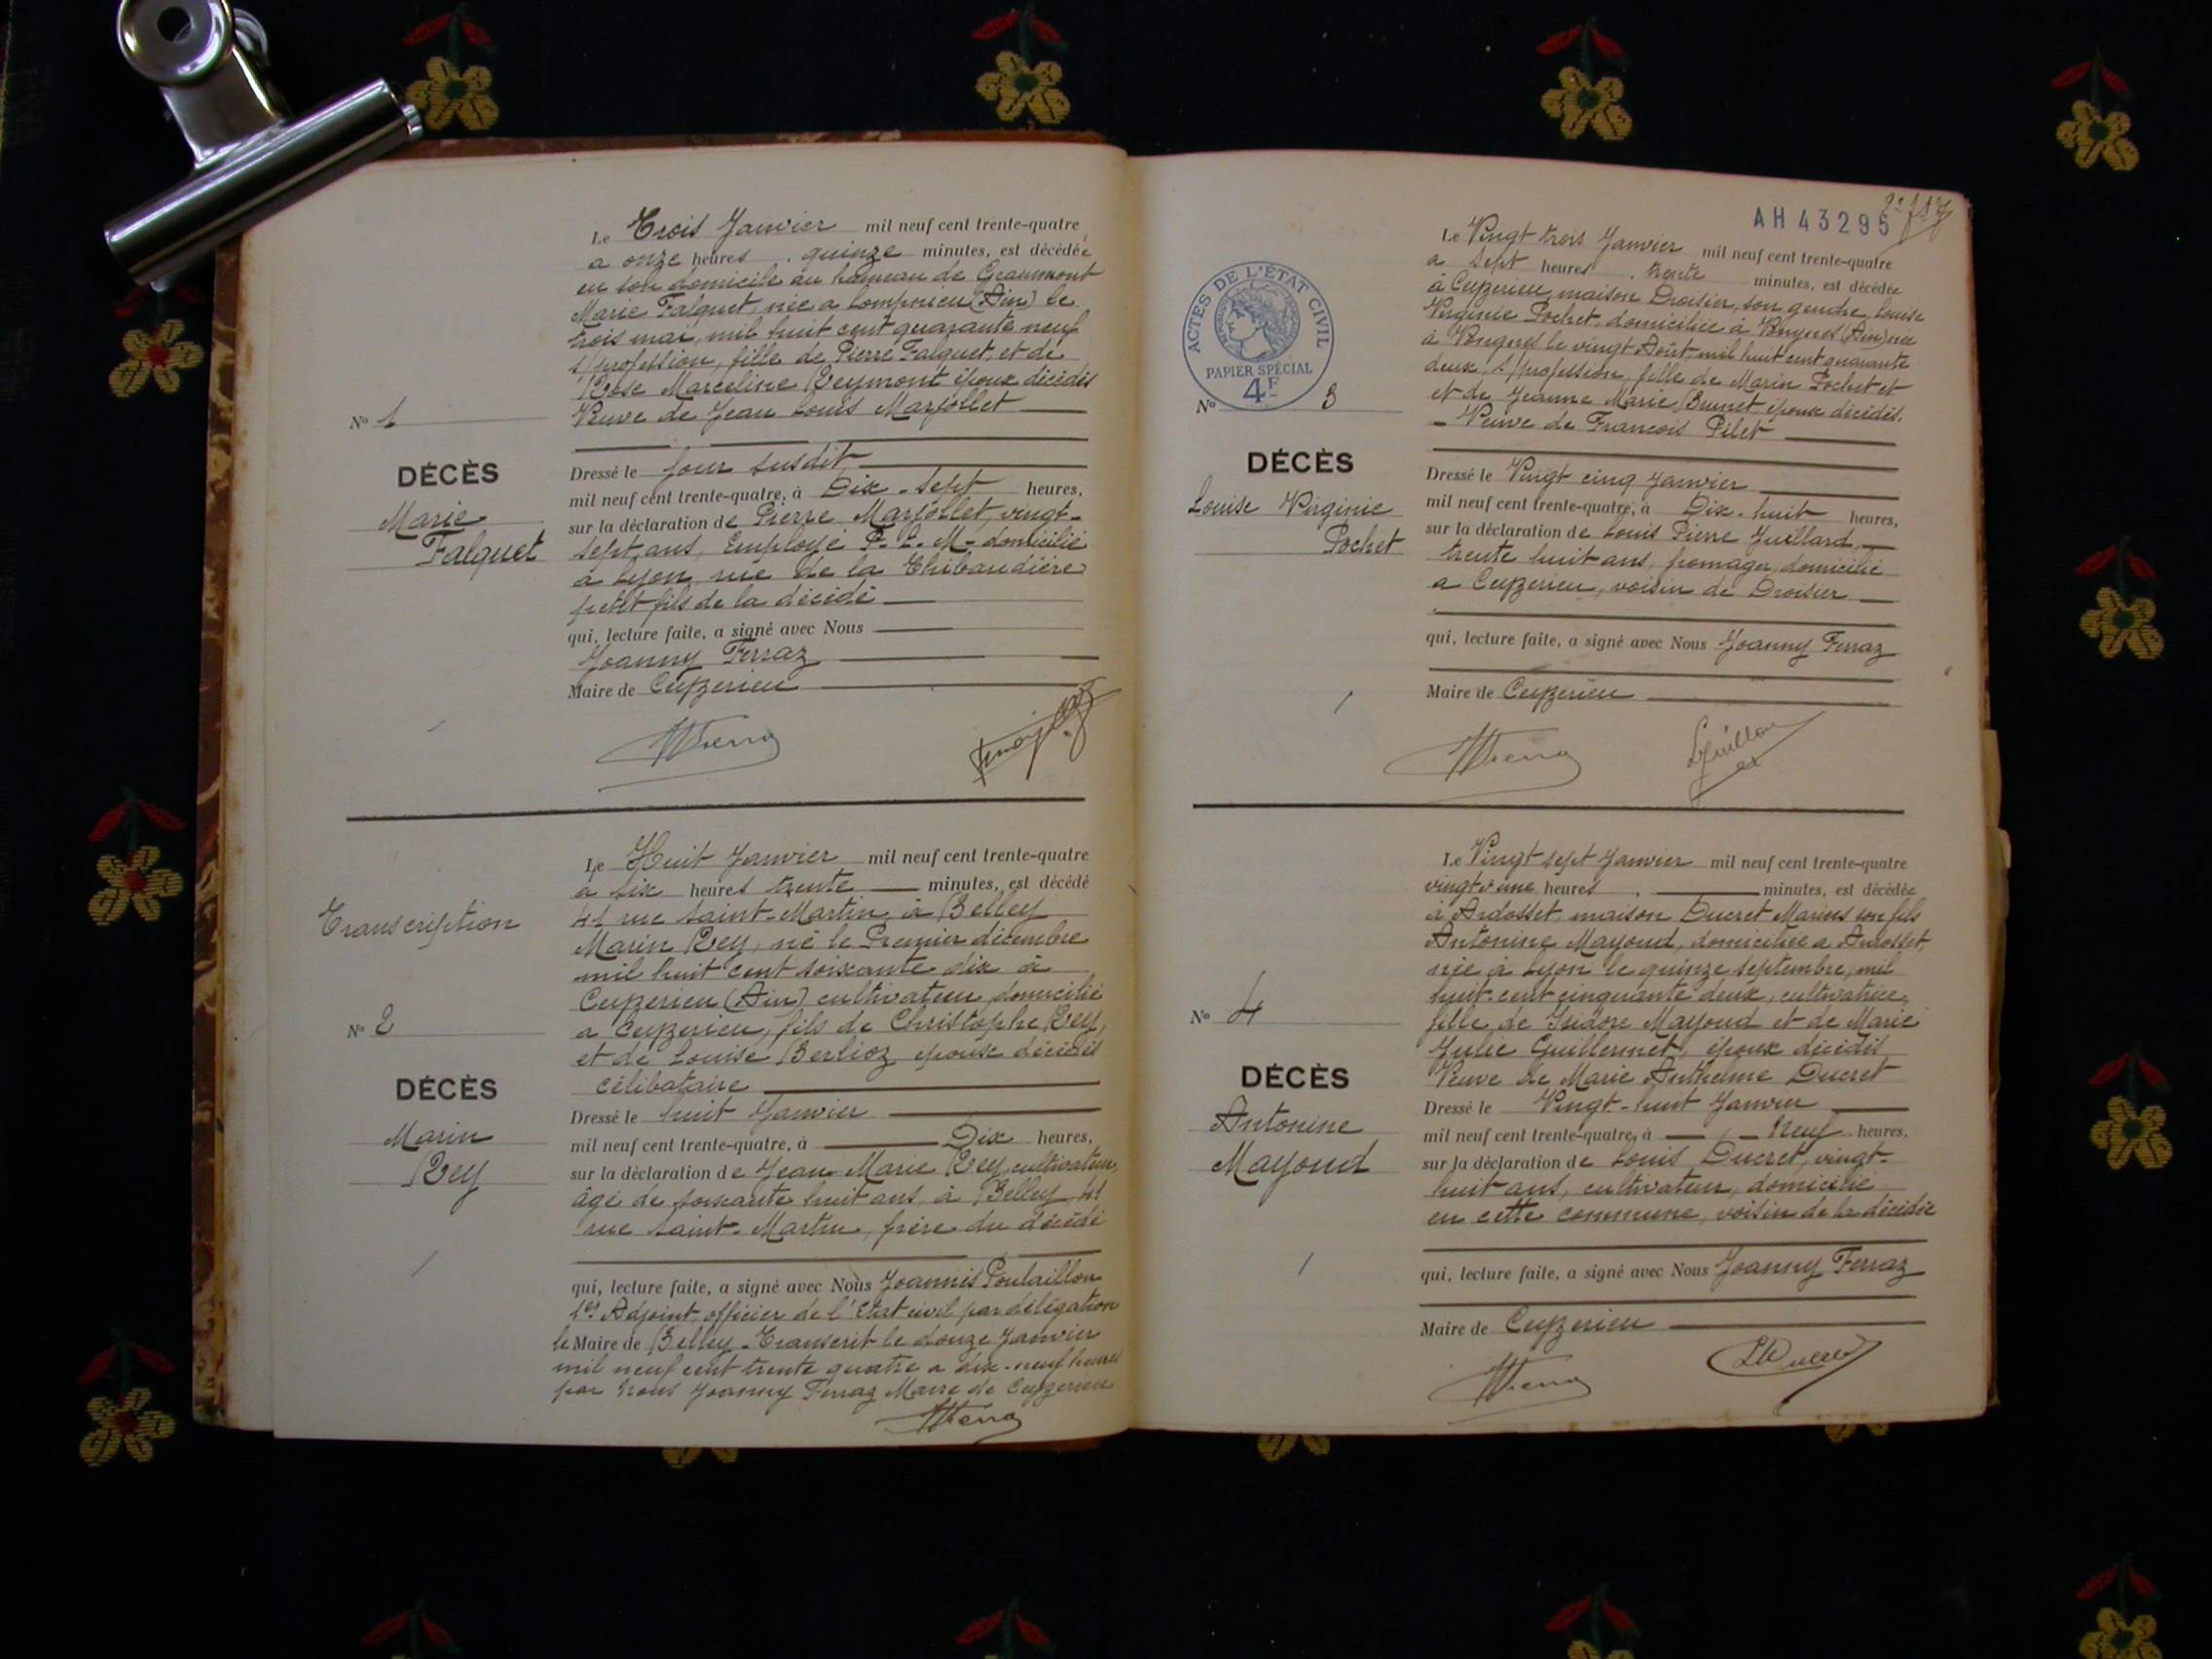 Le Trois Janvier mil neuf cent trente-quatre
a onze heures quinze minutes, est décédée
en son domicile au hameau de Graumont
Marie Falquet, née a Lompnieu (Ain) le
trois mai, mil huit cent quarante neuf
s/profession, fille de Pierre Falquet, et de
Rose Marceline Reymont époux décédés
Veuve de Jean Louis Marjollet
No 1
DÉCÈS
Marie
Falquet
Dressé le jour susdit
mil neuf cent trente-quatre, à Dix-sept heures,
sur la déclaration de Pierre Marjollet, vingt-
sept ans, Employé P.L.M- domicilié
à Lyon, rue de la Thibaudière
petit fils de la décédé
qui, lecture faite, a signé avec Nous
Joanny Ferraz
Maire de Ceyzerieu
Transcription
Le Huit Janvier mil neuf cent trente-quatre
a six heures trente minutes, est décédé
41 rue Saint-Martin, à Belley
Marin Rey, né le Premier décembre
mil huit cent soixante dix à
Ceyzerieu (Ain) cultivateur, domicilié
a Ceyzerieu, fils de Christophe Rey,
et de Louise Berlioz, époux décédés
célibataire
No 2
DÉCÈS
Marin
Rey
Dressé le huit Janvier
mil neuf cent trente-quatre, à Dix heures,
sur la déclaration de Jean Marie Rey, cultivateur,
âgé de soixante huit ans, à Belley, 41
rue Saint-Martin, frère du décédé
qui, lecture faite, a signé avec Nous Joannis Poulaillon
1er Adjoint officier de l'Etat civil par délégation
le Maire de Belley - Transcrit le douze Janvier
mil neuf cent trente quatre a dix-neuf heures
par Nous Joanny Ferraz Maire de Ceyzerieu
AH 43295
ACTES DE L'ÉTAT CIVIL
PAPIER SPÉCIAL
4F
Le Vingt trois Janvier mil neuf cent trente-quatre
a sept heures trente minutes, est décédée
à Ceyzerieu, maison Droisier, son gendre, Louise
Virginie Pochet, domiciliée à Vongnes (Ain) née
à Vongnes le vingt Août, mil huit cent quarante
deux, s/profession, fille de Marin Pochet et
et de Jeanne Marie Brunet, époux décédés.
- Veuve de François Pilet
No 3
DÉCÈS
Louise Virginie
Pochet
Dressé le Vingt cinq Janvier
mil neuf cent trente-quatre, à Dix-huit heures,
sur la déclaration de Louis Pierre Juillard,
trente huit ans, fromager, domicilié
a Ceyzerieu, voisin de Droisier
qui, lecture faite, a signé avec Nous Joanny Ferraz
Maire de Ceyzerieu
Le Vingt sept Janvier mil neuf cent trente-quatre
vingt et une heures minutes, est décédée
à Ardosset, maison Ducret Marius son fils
Antonine Mayoud, domiciliée a Ardosset,
née à Lyon le quinze septembre, mil
huit-cent cinquante deux, cultivatrice,
fille de Isidore Mayoud et de Marie
Julie Guillermet, époux décédés
Veuve de Marie Anthelme Ducret
No 4
DÉCÈS
Antonine
Mayoud
Dressé le Vingt-huit Janvier
mil neuf cent trente-quatre, à Neuf heures,
sur la déclaration de Louis Ducret, vingt-
huit ans, cultivateur, domicilié
en cette commune, voisin de la décédée
qui, lecture faite, a signé avec Nous Joanny Ferraz
Maire de Ceyzerieu